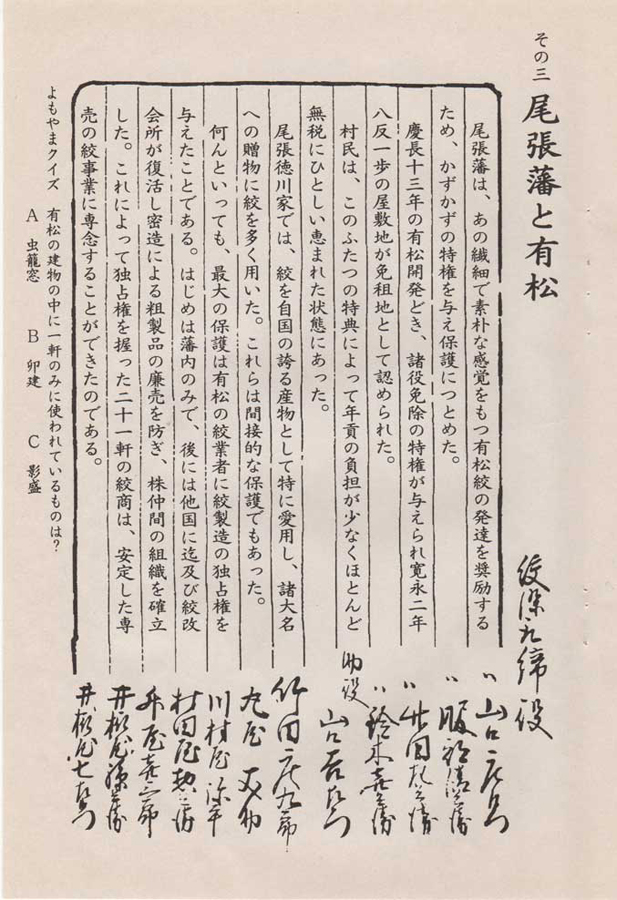 その三 尾張藩と有松
尾張藩は、あの繊細で素朴な感覚をもつ有松絞の発達を奨励する
ため、かずかずの特権を与え保護につとめた。
慶長十三年の有松開発どき、諸役免除の特権が与えられ寛永二年
八反一歩の屋敷地が免租地として認められた。
村民は、このふたつの特典によって年貢の負担が少なくほとんど
無税にひとしい恵まれた状態にあった。
尾張徳川家では、絞を自国の誇る産物として特に愛用し、諸大名
への贈物に絞を多く用いた。これらは間接的な保護でもあった。
何んといっても、最大の保護は有松の絞業者に絞製造の独占権を
与えたことである。はじめは藩内のみで、後には他国に迄及び絞改
会所が復活し密造による粗製品の廉売を防ぎ、株仲間の組織を確立
した。これによって独占権を握った二十一軒の絞商は、安定した専
売の絞事業に専念することができたのである。
よもやまクイズ 有松の建物の中に一軒のみに使われているものは?
A 虫籠窓 B 卯建 C 影盛
〃 山口
〃 服部
〃 竹田
〃 鈴木
助役 山口
竹田
丸屋 丈助
川村屋 弥平
村田屋
井桁屋
井桁屋七